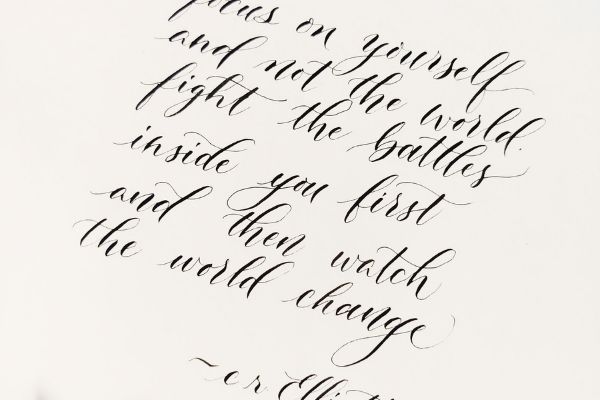 focus on yourself
and not the world.
fight the battles
inside you first
and then watch
the world change
~c.r. Elliott